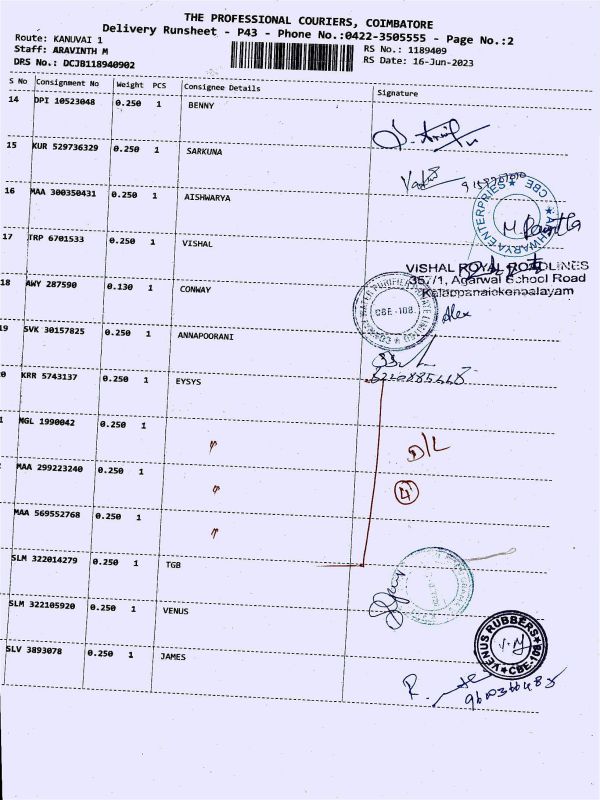 THE PROFESSIONAL COURIERS, COIMBATORE
Delivery Runsheet - P43 - Phone No.:0422-3505555 - Page No.:2
Route: KANUVAI 1
RS No.: 1189409
Staff: ARAVINTH M
RS Date: 16-Jun-2023
DRS No.: DCJB118940902
S No Consignment No Weight PCS Consignee Details Signature
14 DPI 10523048 0.250 1 BENNY
15 KUR 529736329 0.250 1 SARKUNA
16 MAA 300350431 0.250 1 AISHWARYA
AISHWARYA ENTERPRIES ★ CBE ★
17 TRP 6701533 0.250 1 VISHAL
VISHAL ROYAL ROADLINES
357/1, Agarwal School Road
18 AWY 287590 0.130 1 CONWAY
CBE -108.
Alex
19 SVK 30157825 0.250 1 ANNAPOORANI
0 KRR 5743137 0.250 1 EYSYS
1 MGL 1990042 0.250 1 "
D/L
MAA 299223240 0.250 1 "
4
MAA 569552768 0.250 1 "
SLM 322014279 0.250 1 TGB
SLM 322105920 0.250 1 VENUS
VENUS RUBBERS ★ CBE-108 ★
SLV 3893078 0.250 1 JAMES